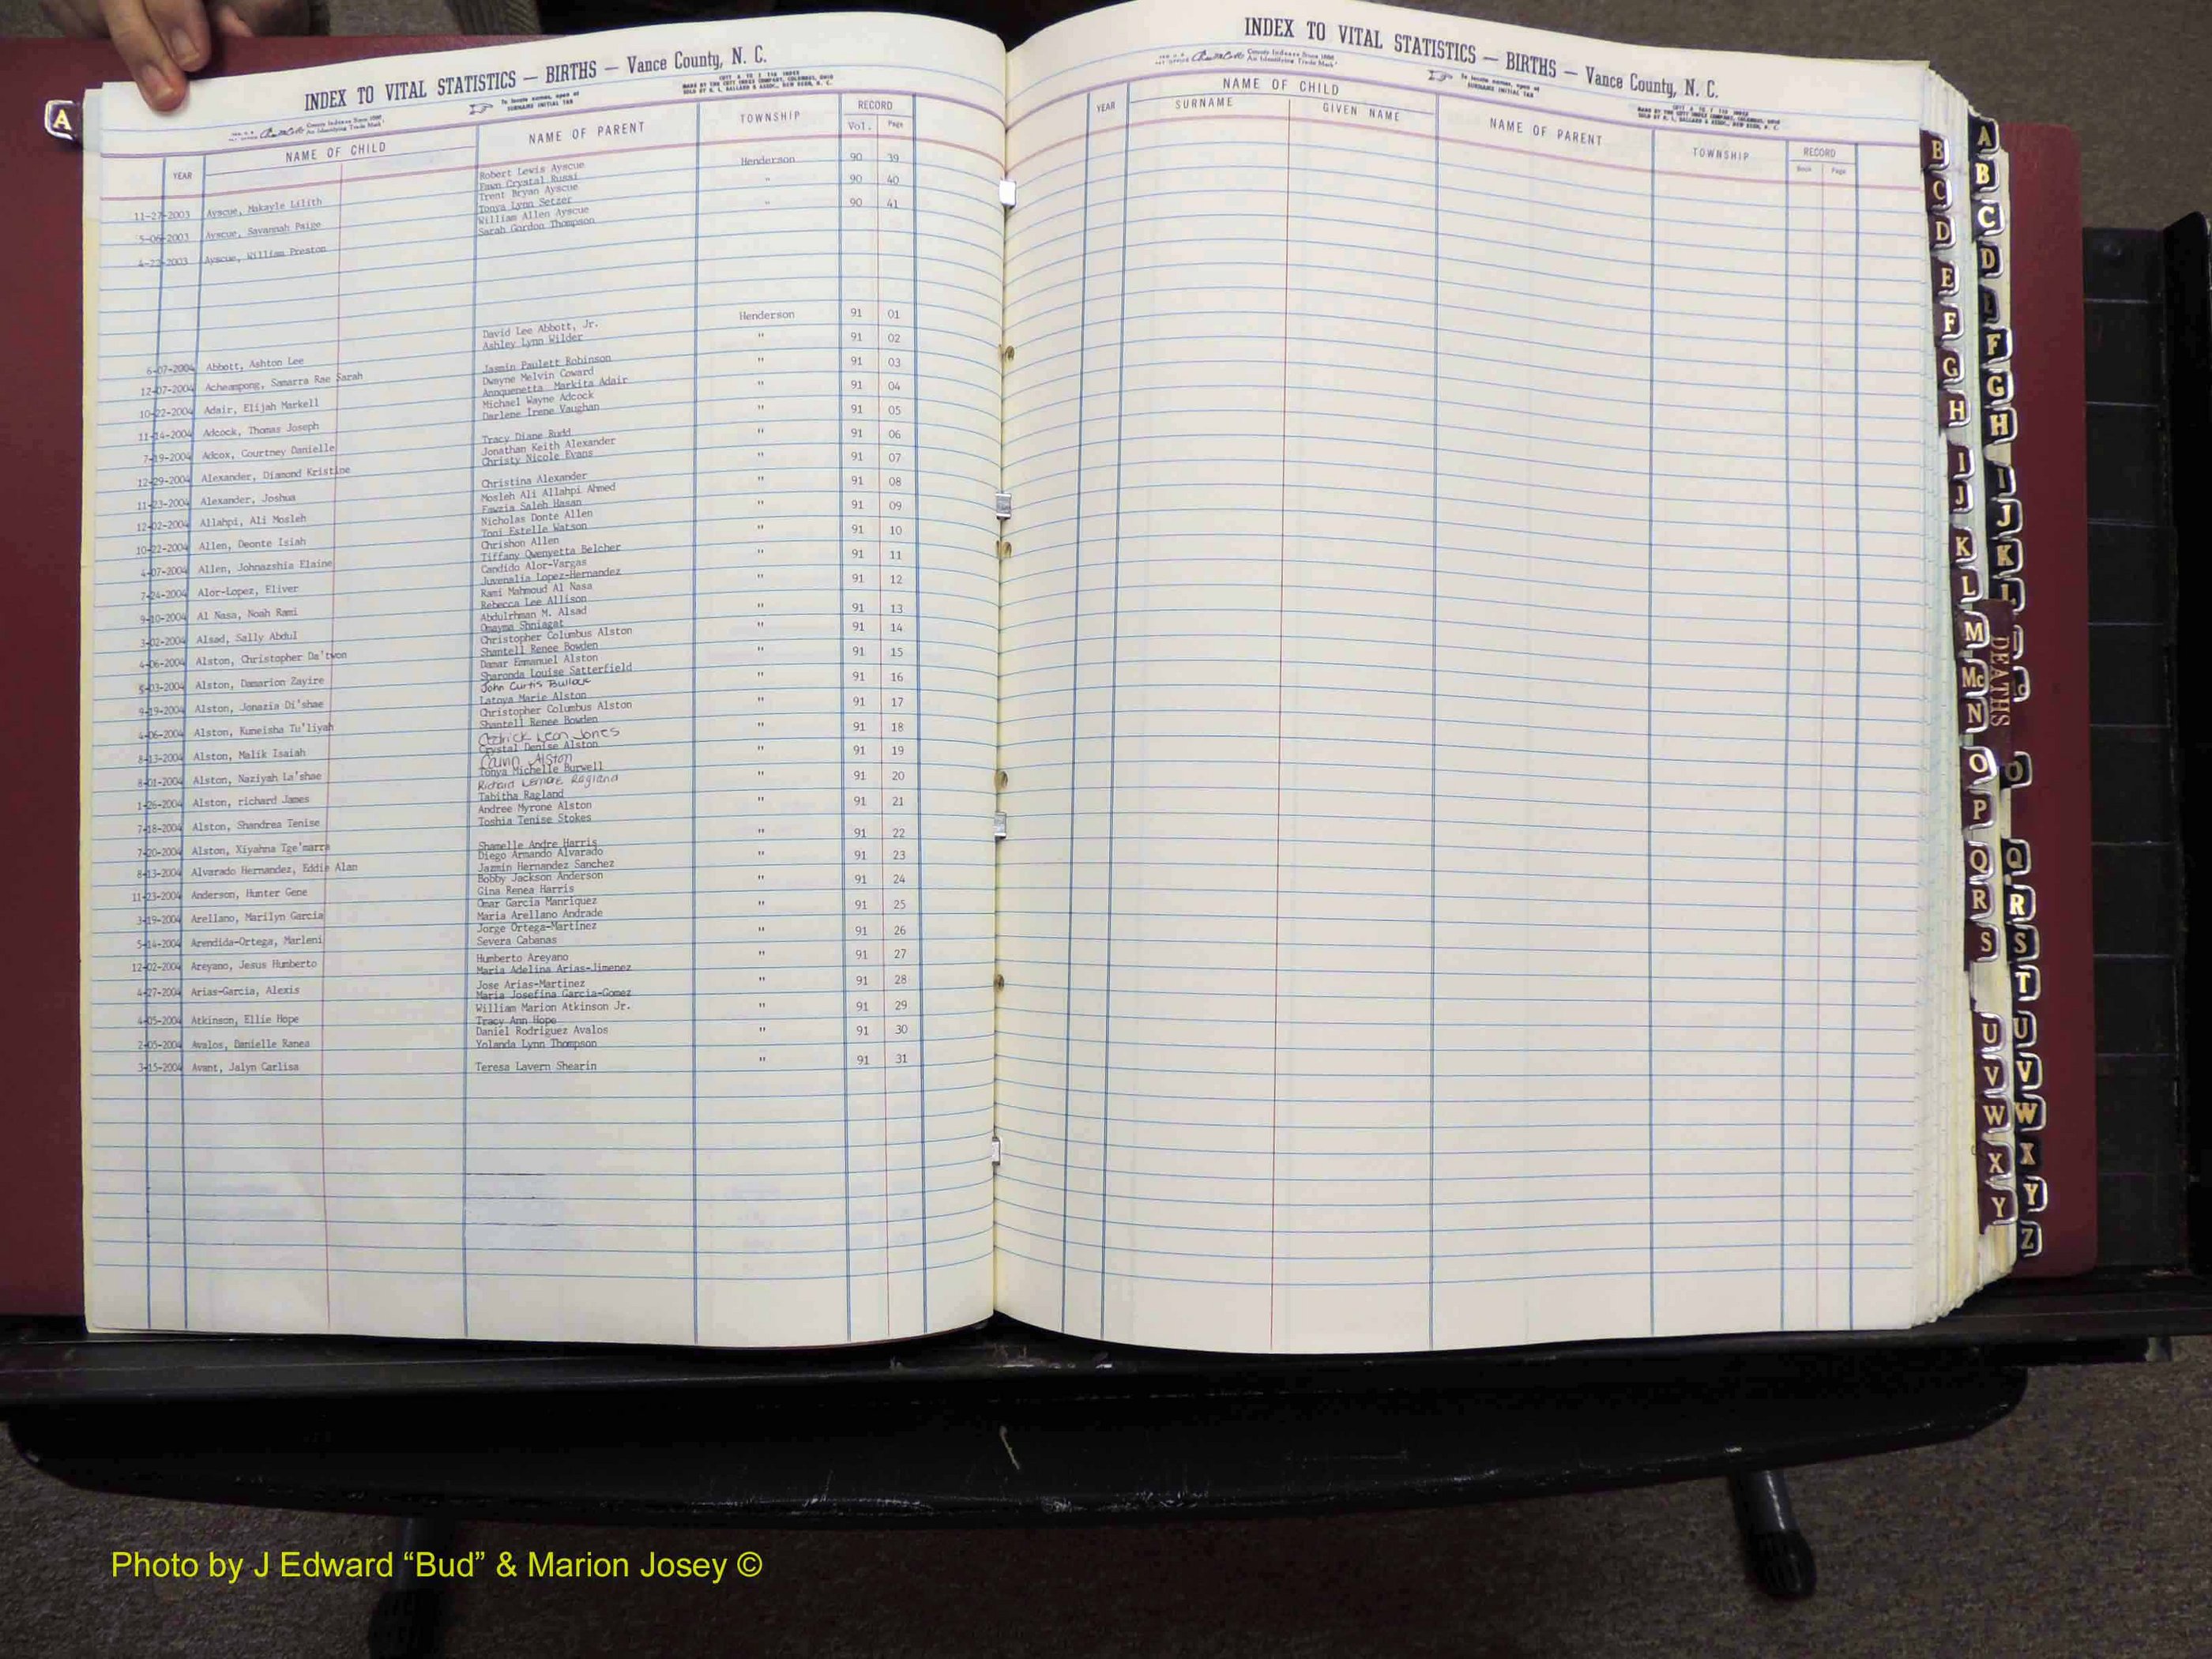 INDEX TO VITAL STATISTICS — BIRTHS — Vance County, N. C.
County Indexes Since 1888
An Identifying Trade Mark
To locate names, open at
SURNAME INITIAL TAB
YEAR NAME OF CHILD NAME OF PARENT TOWNSHIP RECORD
Vol. Page
11-27-2003 Ayscue, Makayle Lilith Robert Lewis Ayscue Henderson 90 39
Fawn Crystal Russi
5-06-2003 Ayscue, Savannah Paige Trent Bryan Ayscue " 90 40
Tonya Lynn Setzer
4-22-2003 Ayscue, William Preston William Allen Ayscue " 90 41
Sarah Gordon Thompson
6-07-2004 Abbott, Ashton Lee David Lee Abbott, Jr. Henderson 91 01
Ashley Lynn Wilder
12-07-2004 Acheampong, Samarra Rae Sarah Jasmin Paulett Robinson " 91 02
10-22-2004 Adair, Elijah Markell Dwayne Melvin Coward " 91 03
Annquenetta Markita Adair
11-14-2004 Adcock, Thomas Joseph Michael Wayne Adcock " 91 04
Darlene Irene Vaughan
7-19-2004 Adcox, Courtney Danielle Tracy Diane Rudd " 91 05
12-29-2004 Alexander, Diamond Kristine Jonathan Keith Alexander " 91 06
Christy Nicole Evans
11-23-2004 Alexander, Joshua Christina Alexander " 91 07
12-02-2004 Allahpi, Ali Mosleh Mosleh Ali Allahpi Ahmed " 91 08
Fawzia Saleh Hasan
10-22-2004 Allen, Deonte Isiah Nicholas Donte Allen " 91 09
Toni Estelle Watson
4-07-2004 Allen, Johnazshia Elaine Chrishon Allen " 91 10
Tiffany Qwenyetta Belcher
7-24-2004 Alor-Lopez, Eliver Candido Alor-Vargas " 91 11
Juvenalia Lopez-Hernandez
9-10-2004 Al Nasa, Noah Rami Rami Mahmoud Al Nasa " 91 12
Rebecca Lee Allison
3-02-2004 Alsad, Sally Abdul Abdulrhman M. Alsad " 91 13
Omayma Shniagat
4-06-2004 Alston, Christopher Da'twon Christopher Columbus Alston " 91 14
Shantell Renee Bowden
5-03-2004 Alston, Damarion Zayire Damar Emmanuel Alston " 91 15
Sharonda Louise Satterfield
9-19-2004 Alston, Jonazia Di'shae John Curtis Bullock " 91 16
Latoya Marie Alston
4-06-2004 Alston, Kuneisha Tu'liyah Christopher Columbus Alston " 91 17
Shantell Renee Bowden
8-13-2004 Alston, Malik Isaiah Cedrick Leon Jones " 91 18
Crystal Denise Alston
8-01-2004 Alston, Naziyah La'shae Calvin Alston " 91 19
Tonya Michelle Burwell
1-26-2004 Alston, richard James Richard Lemore Ragland " 91 20
Tabitha Ragland
7-18-2004 Alston, Shandrea Tenise Andree Myrone Alston " 91 21
Toshia Tenise Stokes
7-20-2004 Alston, Xiyahna Tge'marra Shamelle Andre Harris " 91 22
8-13-2004 Alvarado Hernandez, Eddie Alan Diego Armando Alvarado " 91 23
Jazmin Hernandez Sanchez
11-23-2004 Anderson, Hunter Gene Bobby Jackson Anderson " 91 24
Gina Renea Harris
3-19-2004 Arellano, Marilyn Garcia Omar Garcia Manriquez " 91 25
Maria Arellano Andrade
5-14-2004 Arendida-Ortega, Marleni Jorge Ortega-Martinez " 91 26
Severa Cabanas
12-02-2004 Areyano, Jesus Humberto Humberto Areyano " 91 27
Maria Adelina Arias-Jimenez
4-27-2004 Arias-Garcia, Alexis Jose Arias-Martinez " 91 28
Maria Josefina Garcia-Gomez
4-05-2004 Atkinson, Ellie Hope William Marion Atkinson Jr. " 91 29
Tracy Ann Hope
2-05-2004 Avalos, Danielle Ranea Daniel Rodriguez Avalos " 91 30
Yolanda Lynn Thompson
3-15-2004 Avant, Jalyn Carlisa Teresa Lavern Shearin " 91 31
INDEX TO VITAL STATISTICS — BIRTHS — Vance County, N. C.
County Indexes Since 1888
An Identifying Trade Mark
To locate names, open at
SURNAME INITIAL TAB
YEAR NAME OF CHILD NAME OF PARENT TOWNSHIP RECORD
SURNAME GIVEN NAME Book Page
A
B C D E F G H I J K L M Mc N O P Q R S U V W X Y
A B C D E F G H I J K L O Q R S T U V W X Y Z
DEATHS
Photo by J Edward “Bud” & Marion Josey ©